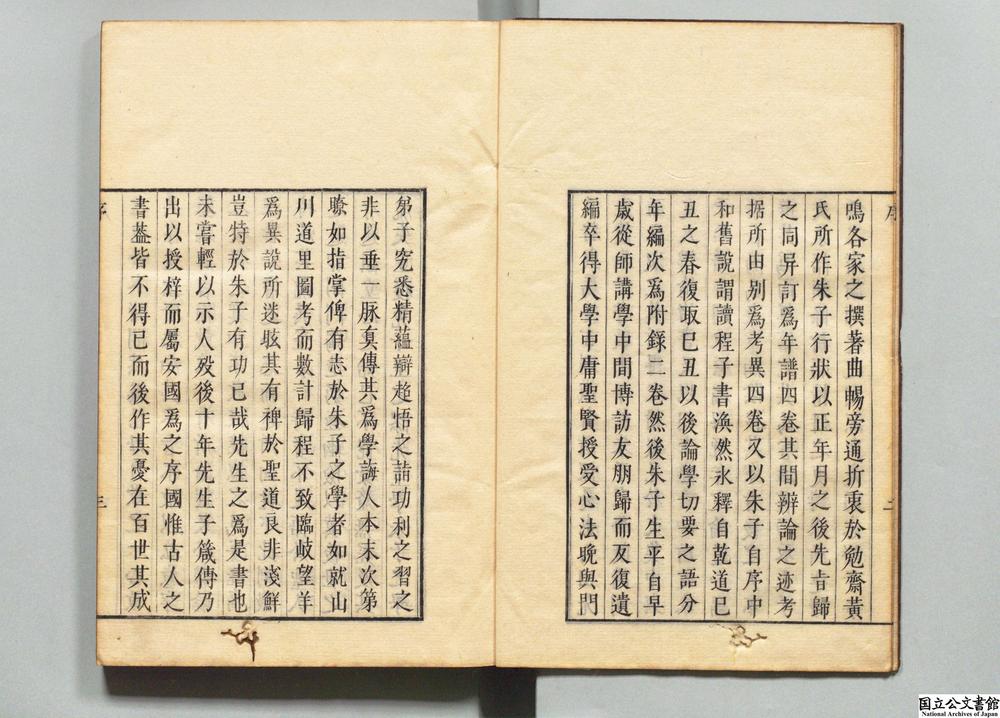 序
鳴各家之撰著曲暢旁通折衷於勉齋黃
氏所作朱子行狀以正年月之後先㫖歸
之同异訂爲年譜四卷其間辨論之迹考
据所由别爲考異四卷又以朱子自序中
和舊說謂讀程子書渙然氷釋自乾道巳
丑之春復取巳丑以後論學切要之語分
年編次爲附錄二卷然後朱子生平自早
歲從師講學中間博訪友朋歸而反復遺
編卒得大學中庸聖賢授受心法晩與門
二
弟子究悉精蘊辯超悟之詰功利之習之
非以垂一脉眞傳其爲學誨人本末次第
瞭如指掌俾有志於朱子之學者如就山
川道里圖考而數計歸程不致臨岐望羊
爲異說所迷眩其有裨於聖道良非淺鮮
豈特於朱子有功已哉先生之爲是書也
未嘗輕以示人歿後十年先生子箴傳乃
出以授梓而屬安國爲之序國惟古人之
書葢皆不得已而後作其憂在百世其成
序
三
国立公文書館
National Archives of Japan